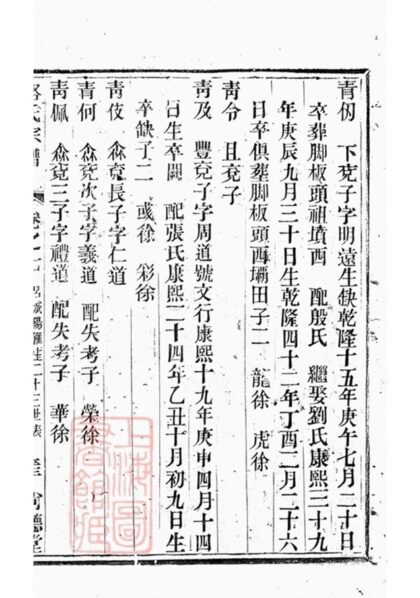 青仞　下兗子字明遠生缺乾隆十五年庚午七月二十日
卒葬脚板頭祖墳西　配殷氏　繼娶劉氏康熙三十九
年庚辰九月三十日生乾隆四十二年丁酉二月二十六
日卒俱葬脚板頭西壩田子二　龍徐　虎徐
青令　且兗子
青及　豐兗子字周道號文行康熙十九年庚申四月十四
日生卒闕　配張氏康熙二十四年乙丑十月初九日生
卒缺子二　彧徐　彩徐
青伎　㒱兗長子字仁道
青何　㒱兗次子字義道　配失考子　榮徐
青佩　㒱兗三子字禮道　配失考子　華徐
氏宗譜　卷之　二十三世表　尚德堂
上海圖書館藏